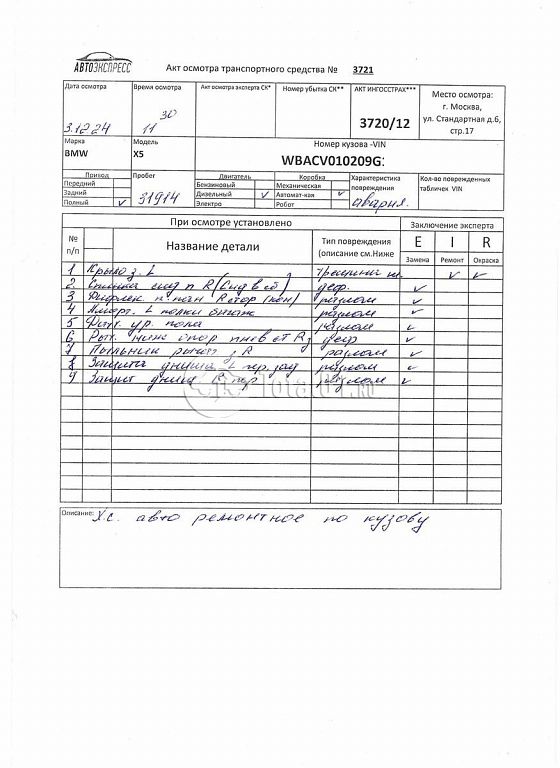 АВТОЭКСПРЕСС
Акт осмотра транспортного средства № 3721
Дата осмотра
3.12.24
Время осмотра
11 30
Акт осмотра эксперта СК*
Номер убытка СК**
АКТ ИНГОССТРАХ***
3720/12
Место осмотра:
г. Москва,
ул. Стандартная д.6,
стр.17
Марка
BMW
Модель
X5
Номер кузова -VIN
WBACV010209G
Привод
Передний
Задний
Полный V
Пробег
31914
Двигатель
Бензиновый
Дизельный V
Электро
Коробка
Механическая
Автомат-кая V
Робот
Характеристика
повреждения
авария.
Кол-во поврежденных
табличек VIN
При осмотре установлено
Заключение эксперта
№ п/п
Название детали
Тип повреждения
(описание см.Ниже
E I R
Замена Ремонт Окраска
1 Крыло з. L V V
2 Спинка сид п R деф. V
3 п. R разлом V
4 L полки багаж разлом V
5 ур. пола разлом V
6 R деф V
7 Пыльник R разлом V
8 Защита днища L пер, зад разлом V
9 Защит днища R пер разлом V
Total01.RU
Описание: Х.с. авто ремонтное по кузову